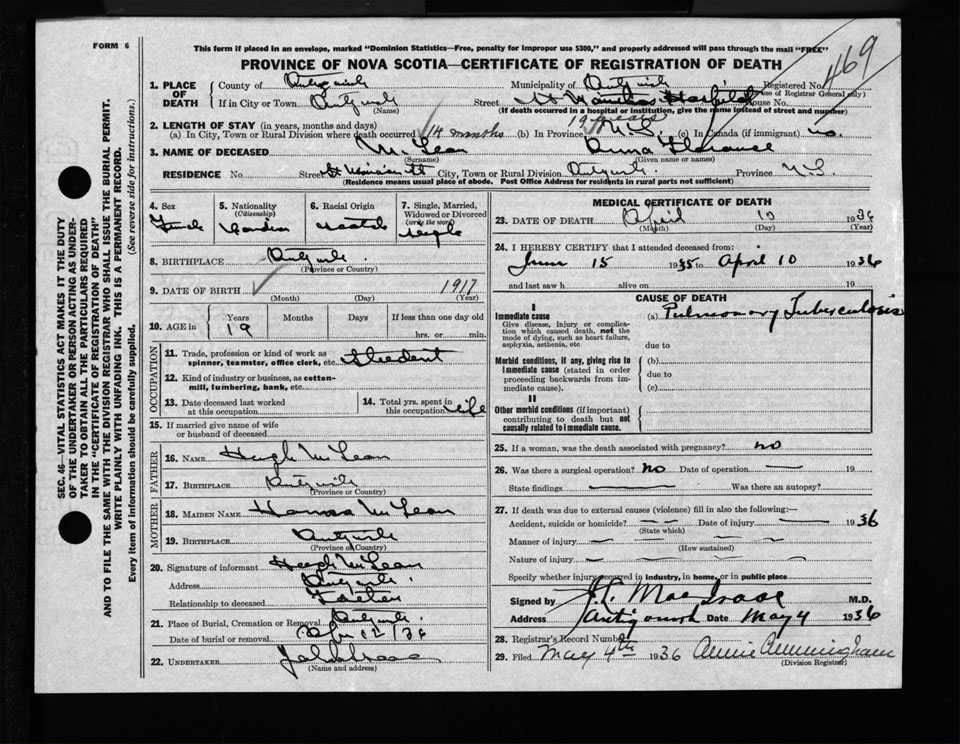 FORM 6
This form if placed in an envelope, marked "Dominion Statistics—Free, penalty for improper use $300," and properly addressed will pass through the mail "FREE"
PROVINCE OF NOVA SCOTIA—CERTIFICATE OF REGISTRATION OF DEATH
469
1. PLACE OF DEATH County of Antigonish Municipality of Antigonish Registered No.
(For use of Registrar General only)
If in City or Town Antigonish Street St Marthas Hospital House No.
(Name) (If death occurred in a hospital or institution, give the name instead of street and number)
2. LENGTH OF STAY (in years, months and days) 19 years
(a) In City, Town or Rural Division where death occurred 14 months (b) In Province N.S. (c) In Canada (if immigrant) no.
3. NAME OF DECEASED McLean Anna Florance
(Surname) (Given name or names)
RESIDENCE No. Street St Vincent City, Town or Rural Division Antigonish Province N.S.
(Residence means usual place of abode. Post Office Address for residents in rural parts not sufficient)
4. Sex Female
5. Nationality (Citizenship) Canadian
6. Racial Origin Scotch
7. Single, Married, Widowed or Divorced (write the word) Single
8. BIRTHPLACE Antigonish
(Province or Country)
9. DATE OF BIRTH 1917
(Month) (Day) (Year)
10. AGE in Years Months Days If less than one day old
19 hrs. or min.
OCCUPATION
11. Trade, profession or kind of work as spinner, teamster, office clerk, etc. Student
12. Kind of industry or business, as cotton-mill, lumbering, bank, etc.
13. Date deceased last worked at this occupation
14. Total yrs. spent in this occupation life
15. If married give name of wife or husband of deceased
FATHER
16. NAME Hugh McLean
17. BIRTHPLACE Antigonish
(Province or Country)
MOTHER
18. MAIDEN NAME McLean
19. BIRTHPLACE Antigonish
(Province or Country)
20. Signature of informant Hugh McLean
Address Antigonish
Relationship to deceased Father
21. Place of Burial, Cremation or Removal Antigonish
Date of burial or removal Apr 12/36
22. UNDERTAKER
(Name and address)
MEDICAL CERTIFICATE OF DEATH
23. DATE OF DEATH April 10 1936
(Month) (Day) (Year)
24. I HEREBY CERTIFY that I attended deceased from:
June 15 1935 to April 10 1936
and last saw h alive on 19
CAUSE OF DEATH
I
Immediate cause (a) Pulmonary Tuberculosis
Give disease, injury or complication which caused death, not the mode of dying, such as heart failure, asphyxia, asthenia, etc
due to
Morbid conditions, if any, giving rise to immediate cause (stated in order proceeding backwards from immediate cause).
(b)
due to
(c)
II
Other morbid conditions (if important) contributing to death but not causally related to immediate cause.
25. If a woman, was the death associated with pregnancy? no
26. Was there a surgical operation? no Date of operation — 19
State findings — Was there an autopsy?
27. If death was due to external causes (violence) fill in also the following:—
Accident, suicide or homicide? — — Date of injury — 1936
(State which)
Manner of injury
(How sustained)
Nature of injury
Specify whether injury occurred in industry, in home, or in public place
Signed by MacIsaac M.D.
Address Antigonish Date May 4 1936
28. Registrar's Record Number
29. Filed May 4th 1936 Annie Cunningham
(Division Registrar)
SEC. 46—VITAL STATISTICS ACT MAKES IT THE DUTY
OF THE UNDERTAKER OR PERSON ACTING AS UNDER-
TAKER TO OBTAIN ALL THE PARTICULARS REQUIRED
IN THE "CERTIFICATE OF REGISTRATION OF DEATH"
AND TO FILE THE SAME WITH THE DIVISION REGISTRAR WHO SHALL ISSUE THE BURIAL PERMIT.
WRITE PLAINLY WITH UNFADING INK. THIS IS A PERMANENT RECORD.
Every item of information should be carefully supplied. (See reverse side for instructions.)